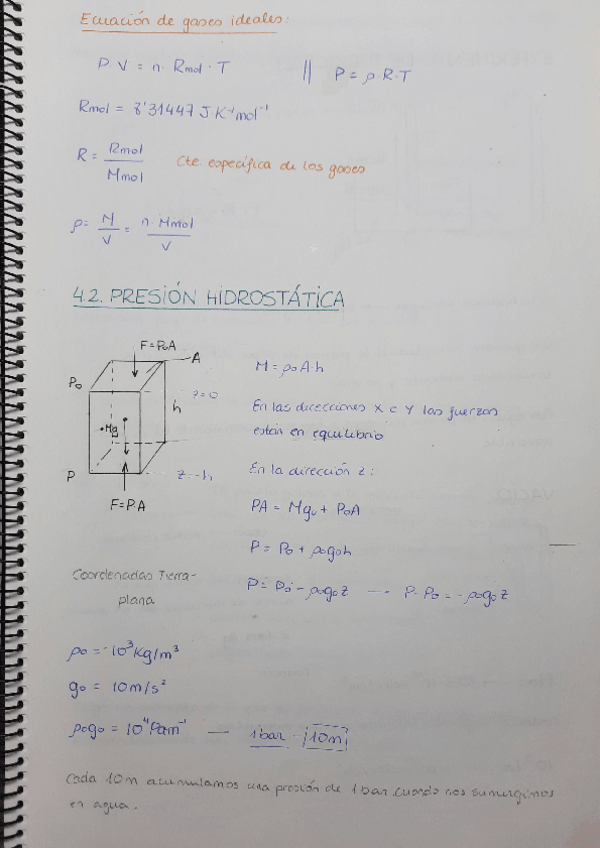 Ecuación de gases ideales:
P V = n. Rmol. T || P = ρ.R.T
Rmol = 8'31447 J K⁻¹mol⁻¹
R = Rmol / Mmol Cte. específica de los gases
ρ = M / V = n. Mmol / V
4.2. PRESIÓN HIDROSTÁTICA
F=P₀A
A
P₀
z=0
h
Mg₀
P
z=-h
F=P.A
M = ρ₀A.h
En las direcciones X e Y las fuerzas
están en equilibrio
En la dirección z:
PA = Mg₀ + P₀A
P = P₀ + ρ₀g₀h
P = P₀ - ρ₀g₀z --- P-P₀ = -ρ₀g₀z
Coordenadas Tierra-
plana
ρ₀ = 10³ Kg/m³
g₀ = 10m/s²
ρ₀g₀ = 10⁴ Pa m⁻¹ — 1 bar - 10m
Cada 10m acumulamos una presión de 1 bar cuando nos sumergimos
en agua.